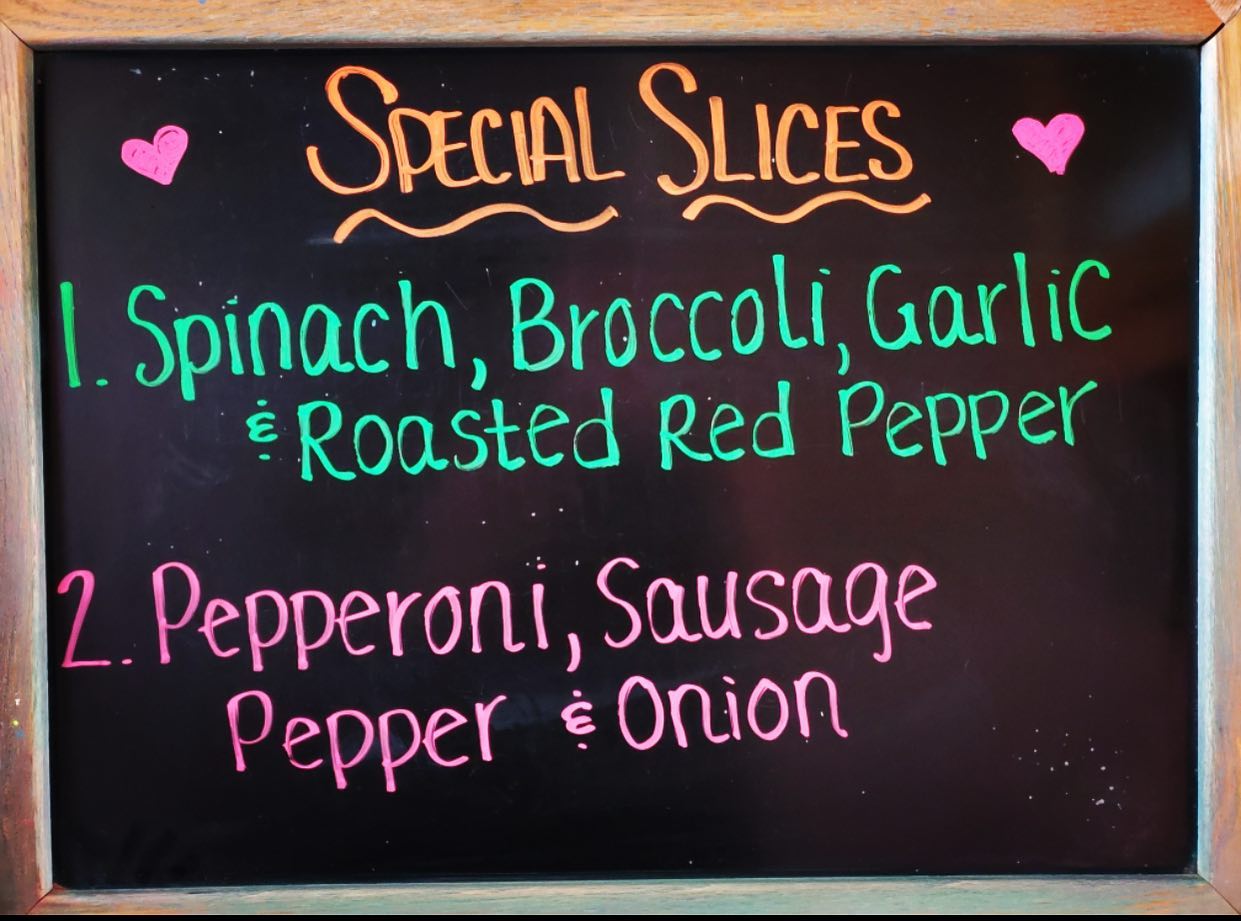 SPECIAL SLICES
1. Spinach, Broccoli, Garlic
& Roasted Red Pepper
2. Pepperoni, Sausage
Pepper & Onion